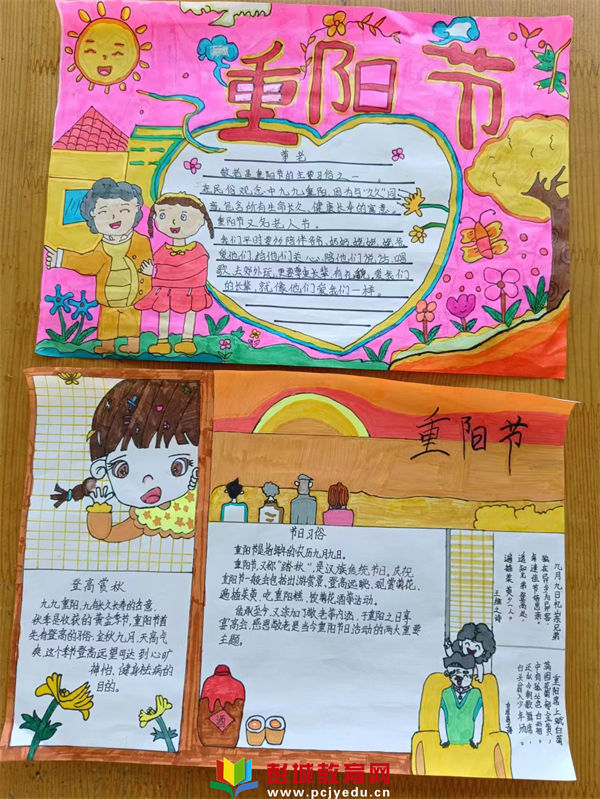 重阳节
尊老
敬老是重阳节的主要习俗之一。
在民俗观念中九九重阳,因为与"久久"同
音,包含有生命长久、健康长寿的寓意。
重阳节又为老人节。
我们平时要多陪伴爷爷、奶奶、姥姥、姥爷
关心,陪他们说话,唱
歌,去郊外玩,长辈,有礼貌,爱我们
的长辈,就像他们爱我们一样。
重阳节
登高赏秋
九九重阳,九有久久长寿的含意,
秋季是收获的黄金季节,重阳节首
先有登高的习俗,金秋九月,天高气
爽,这个时候登高远望可达到心旷
神怡、健身祛病的
目的。
节日习俗
重阳节是指每年的农历九月九日。
重阳节,又称"踏秋",是汉族传统节日。庆祝
重阳节一般会包括出游赏景、登高远眺、观赏菊花、
遍插茱萸、吃重阳糕、饮菊花酒等活动。
传承至今,又添加了敬老等内涵,于重阳之日享
宴高会,感恩敬老是当今重阳节日活动的两大重要
主题。
酒
九月九日忆山东兄弟
独在异乡为异客,
每逢佳节倍思亲。
遥知兄弟登高处,
遍插茱萸少一人。
王维之诗
重阳席上赋白菊
满园花菊郁金黄,
中有孤丛色白霜。
还似今朝歌酒席,
白头翁入少年场。
彭城教育网
www.pcjyedu.cn